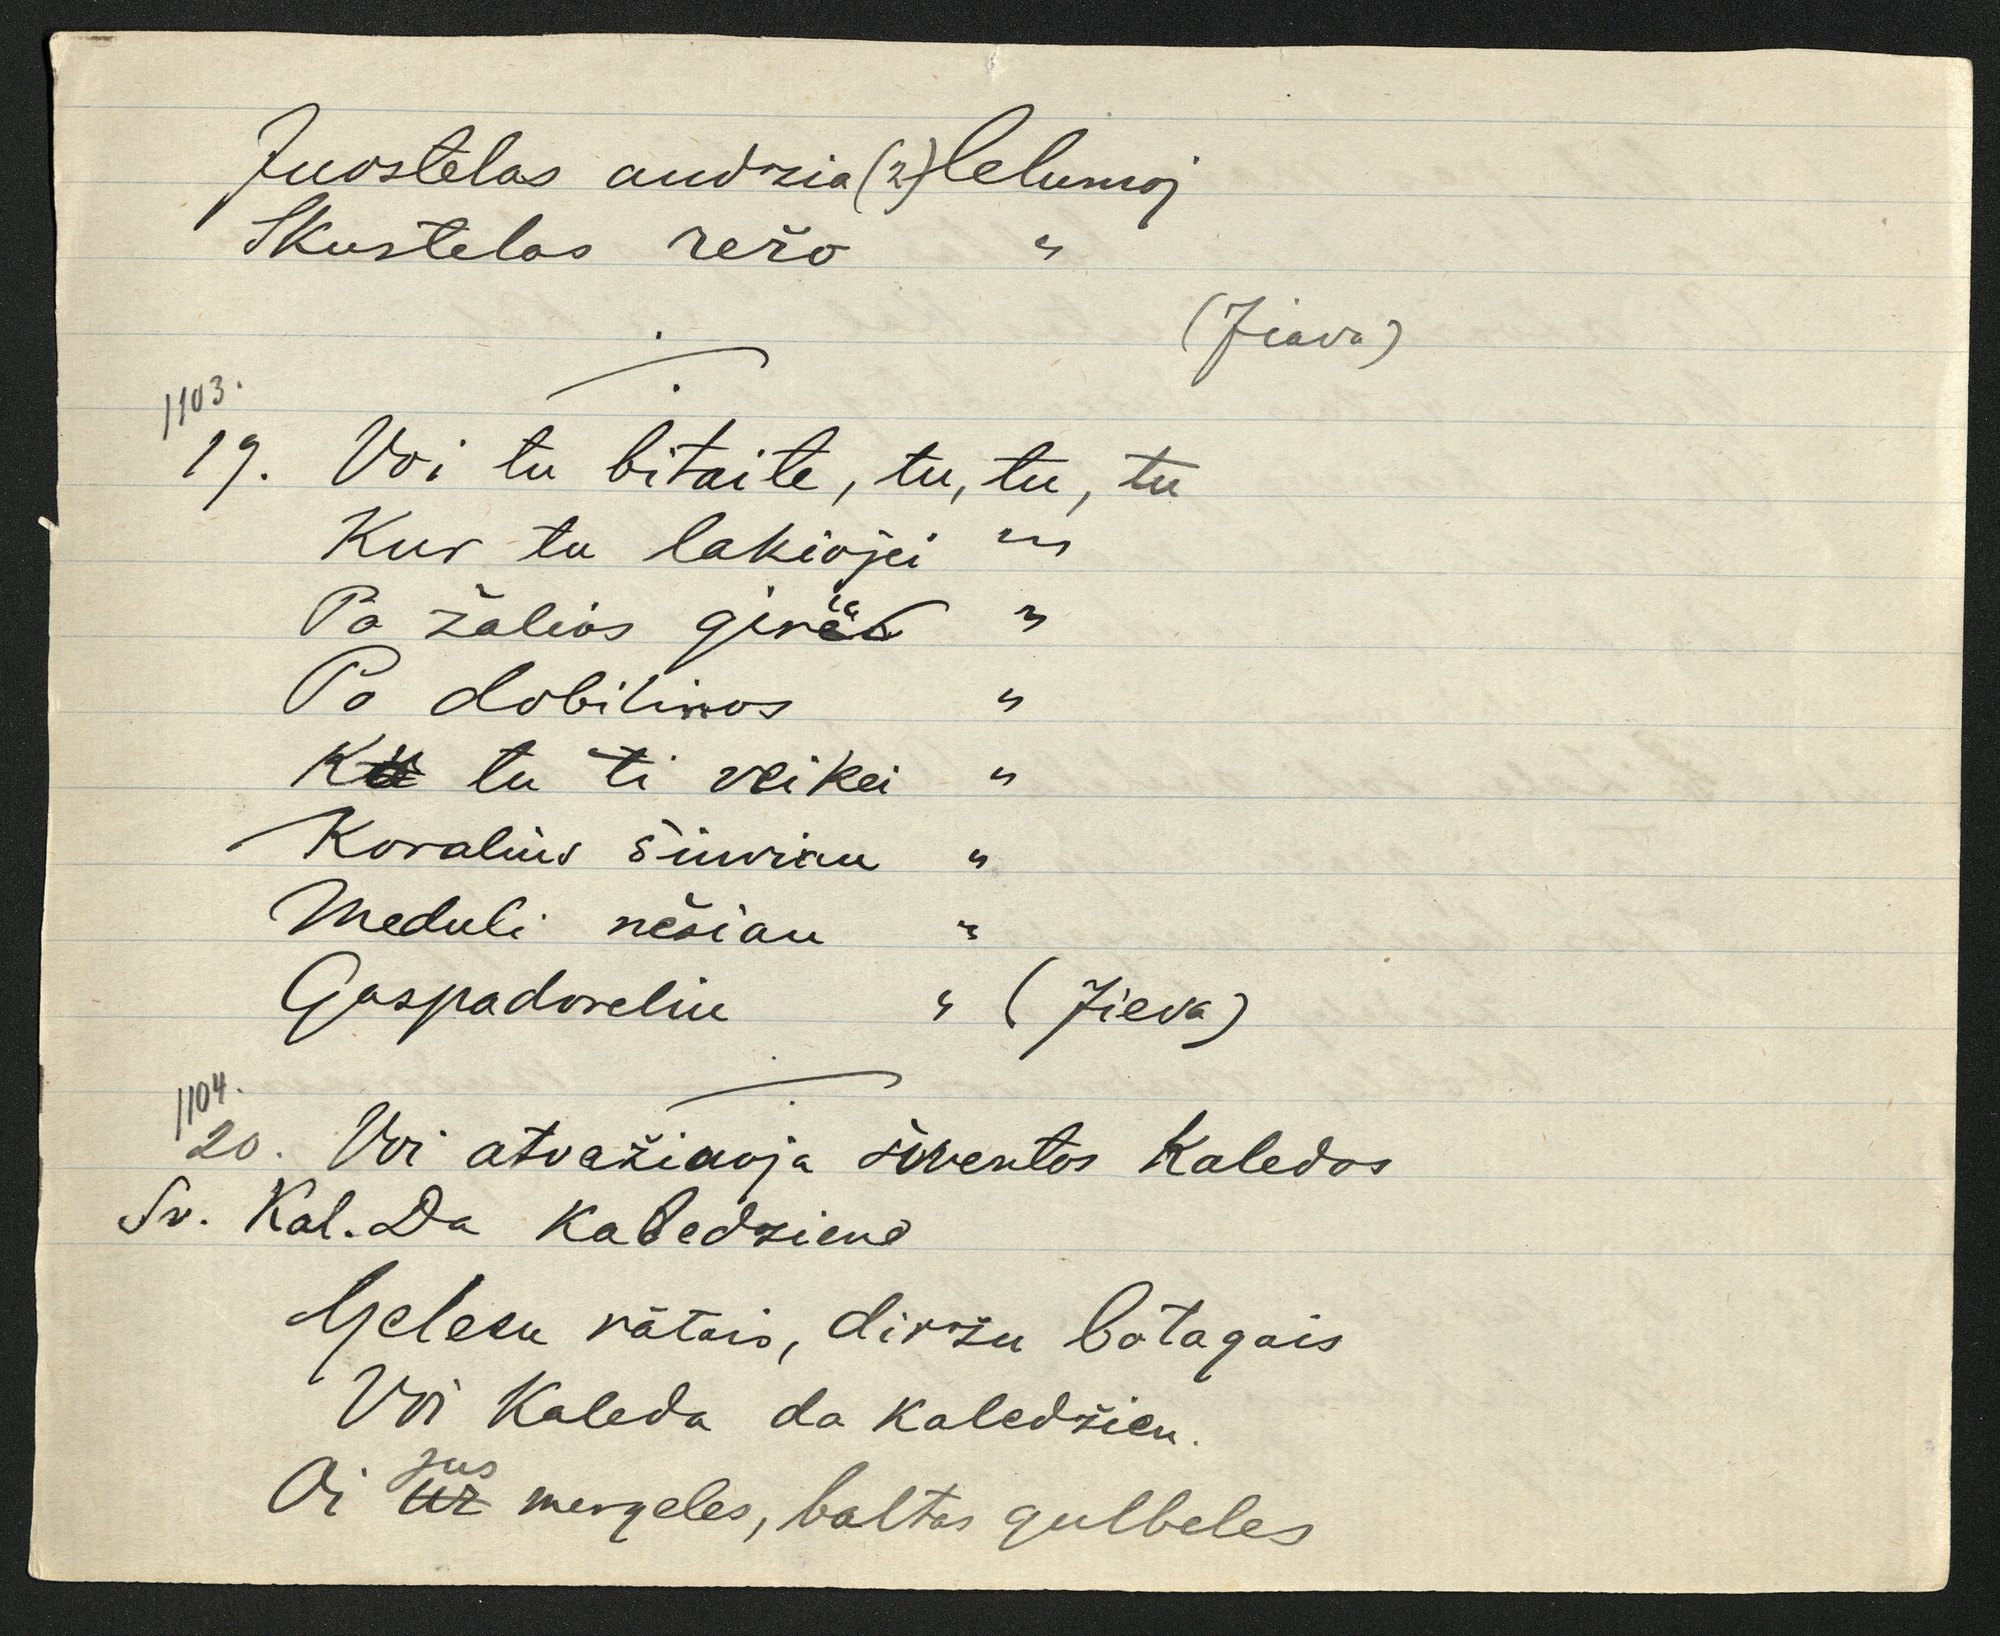 Juostelas audzia (2) lelumoj
Skustelas režo "
(Jiava)
1103.
19. Voi tu bitaite, tu, tu, tu
Kur tu lakiojei "
Po žalios girės "
Po dobilinos "
tu ti veikei "
Koralius šiuviau "
Meduli nešiau "
Gaspadoreliu " (Jieva)
1104.
20. Voi atvažiuoja šventos Kaledos
Šv. Kal. Da Kaledziene
Gelesu rātais, diržu botagais
Voi Kaleda da kaledžien.
jus
Oi už mergeles, baltas gulbeles